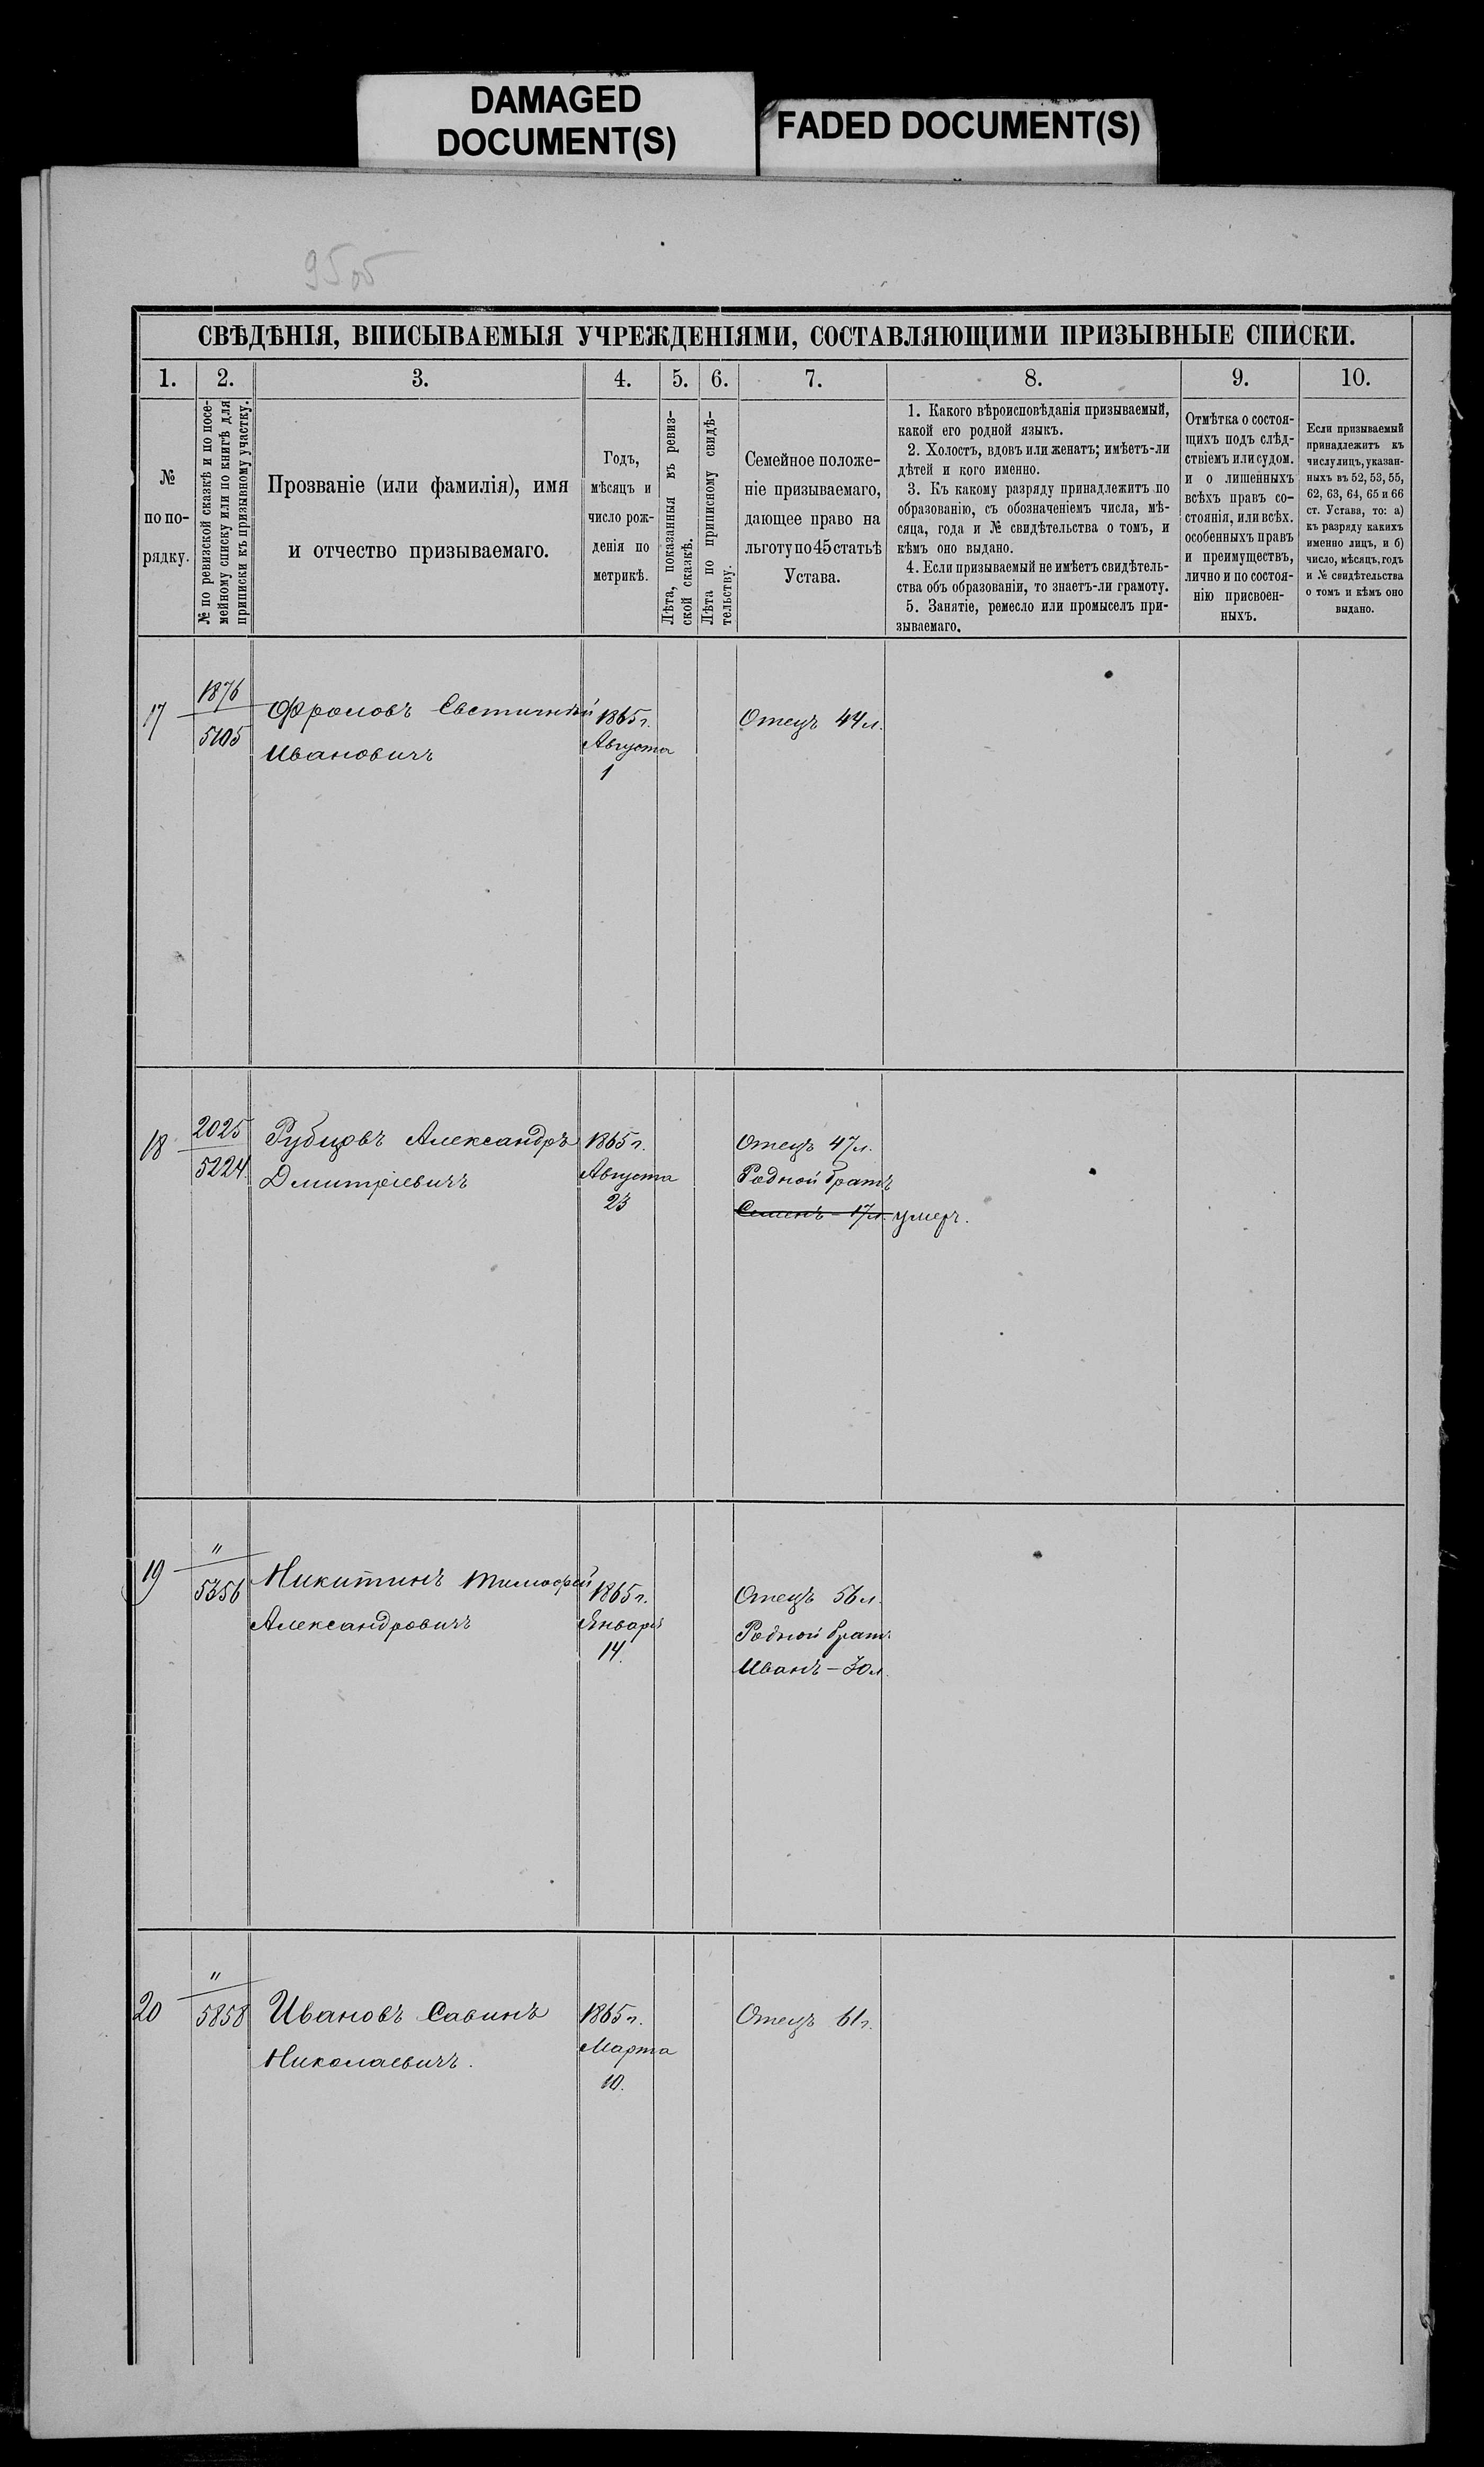 DAMAGED
DOCUMENT(S)
FADED DOCUMENT(S)
СВѢДѢНІЯ, ВПИСЫВАЕМЫЯ УЧРЕЖДЕНІЯМИ, СОСТАВЛЯЮЩИМИ ПРИЗЫВНЫЕ СПИСКИ.
1.
2.
3.
4.
5.
6.
7.
8.
9.
10.
№
по по-
рядку.
№ по ревизской сказкѣ и по посе-
мейному списку или по книгѣ для
приписки къ призывному участку.
Прозваніе (или фамилія), имя
и отчество призываемаго.
Годъ,
мѣсяцъ и
число рож-
денія по
метрикѣ.
Лѣта, показанныя въ ревиз-
ской сказкѣ.
Лѣта по приписному свидѣ-
тельству.
Семейное положе-
ніе призываемаго,
дающее право на
льготу по 45 статьѣ
Устава.
1. Какого вѣроисповѣданія призываемый,
какой его родной языкъ.
2. Холостъ, вдовъ или женатъ; имѣетъ-ли
дѣтей и кого именно.
3. Къ какому разряду принадлежитъ по
образованію, съ обозначеніемъ числа, мѣ-
сяца, года и № свидѣтельства о томъ, и
кѣмъ оно выдано.
4. Если призываемый не имѣетъ свидѣтель-
ства объ образованіи, то знаетъ-ли грамоту.
5. Занятіе, ремесло или промыселъ при-
зываемаго.
Отмѣтка о состоя-
щихъ подъ слѣд-
ствіемъ или судом.
и о лишенныхъ
всѣхъ правъ со-
стоянія, или всѣх.
особенныхъ правъ
и преимуществъ,
лично и по состоя-
нію присвоен-
ныхъ.
Если призываемый
принадлежитъ къ
числу лицъ, указан-
ныхъ въ 52, 53, 55,
62, 63, 64, 65 и 66
ст. Устава, то: а)
къ разряду какихъ
именно лицъ, и б)
число, мѣсяцъ, годъ
и № свидѣтельства
о томъ и кѣмъ оно
выдано.
17
1876
5105
Фроловъ
Ивановичъ
1865 г.
Августа
1
Отецъ 44 л.
18
2025
5224
Рубцовъ Александръ
Дмитріевичъ
1865 г.
Августа
23
Отецъ 47 л.
Родной братъ
Семенъ - 17 л. умеръ.
19
"
5356
Никитинъ Тимофей
Александровичъ
1865 г.
Января
14.
Отецъ 56 л.
Родной братъ
Иванъ - 30 л.
20
"
5858
Ивановъ Савинъ
Николаевичъ.
1865 г.
Марта
10.
Отецъ 61 г.